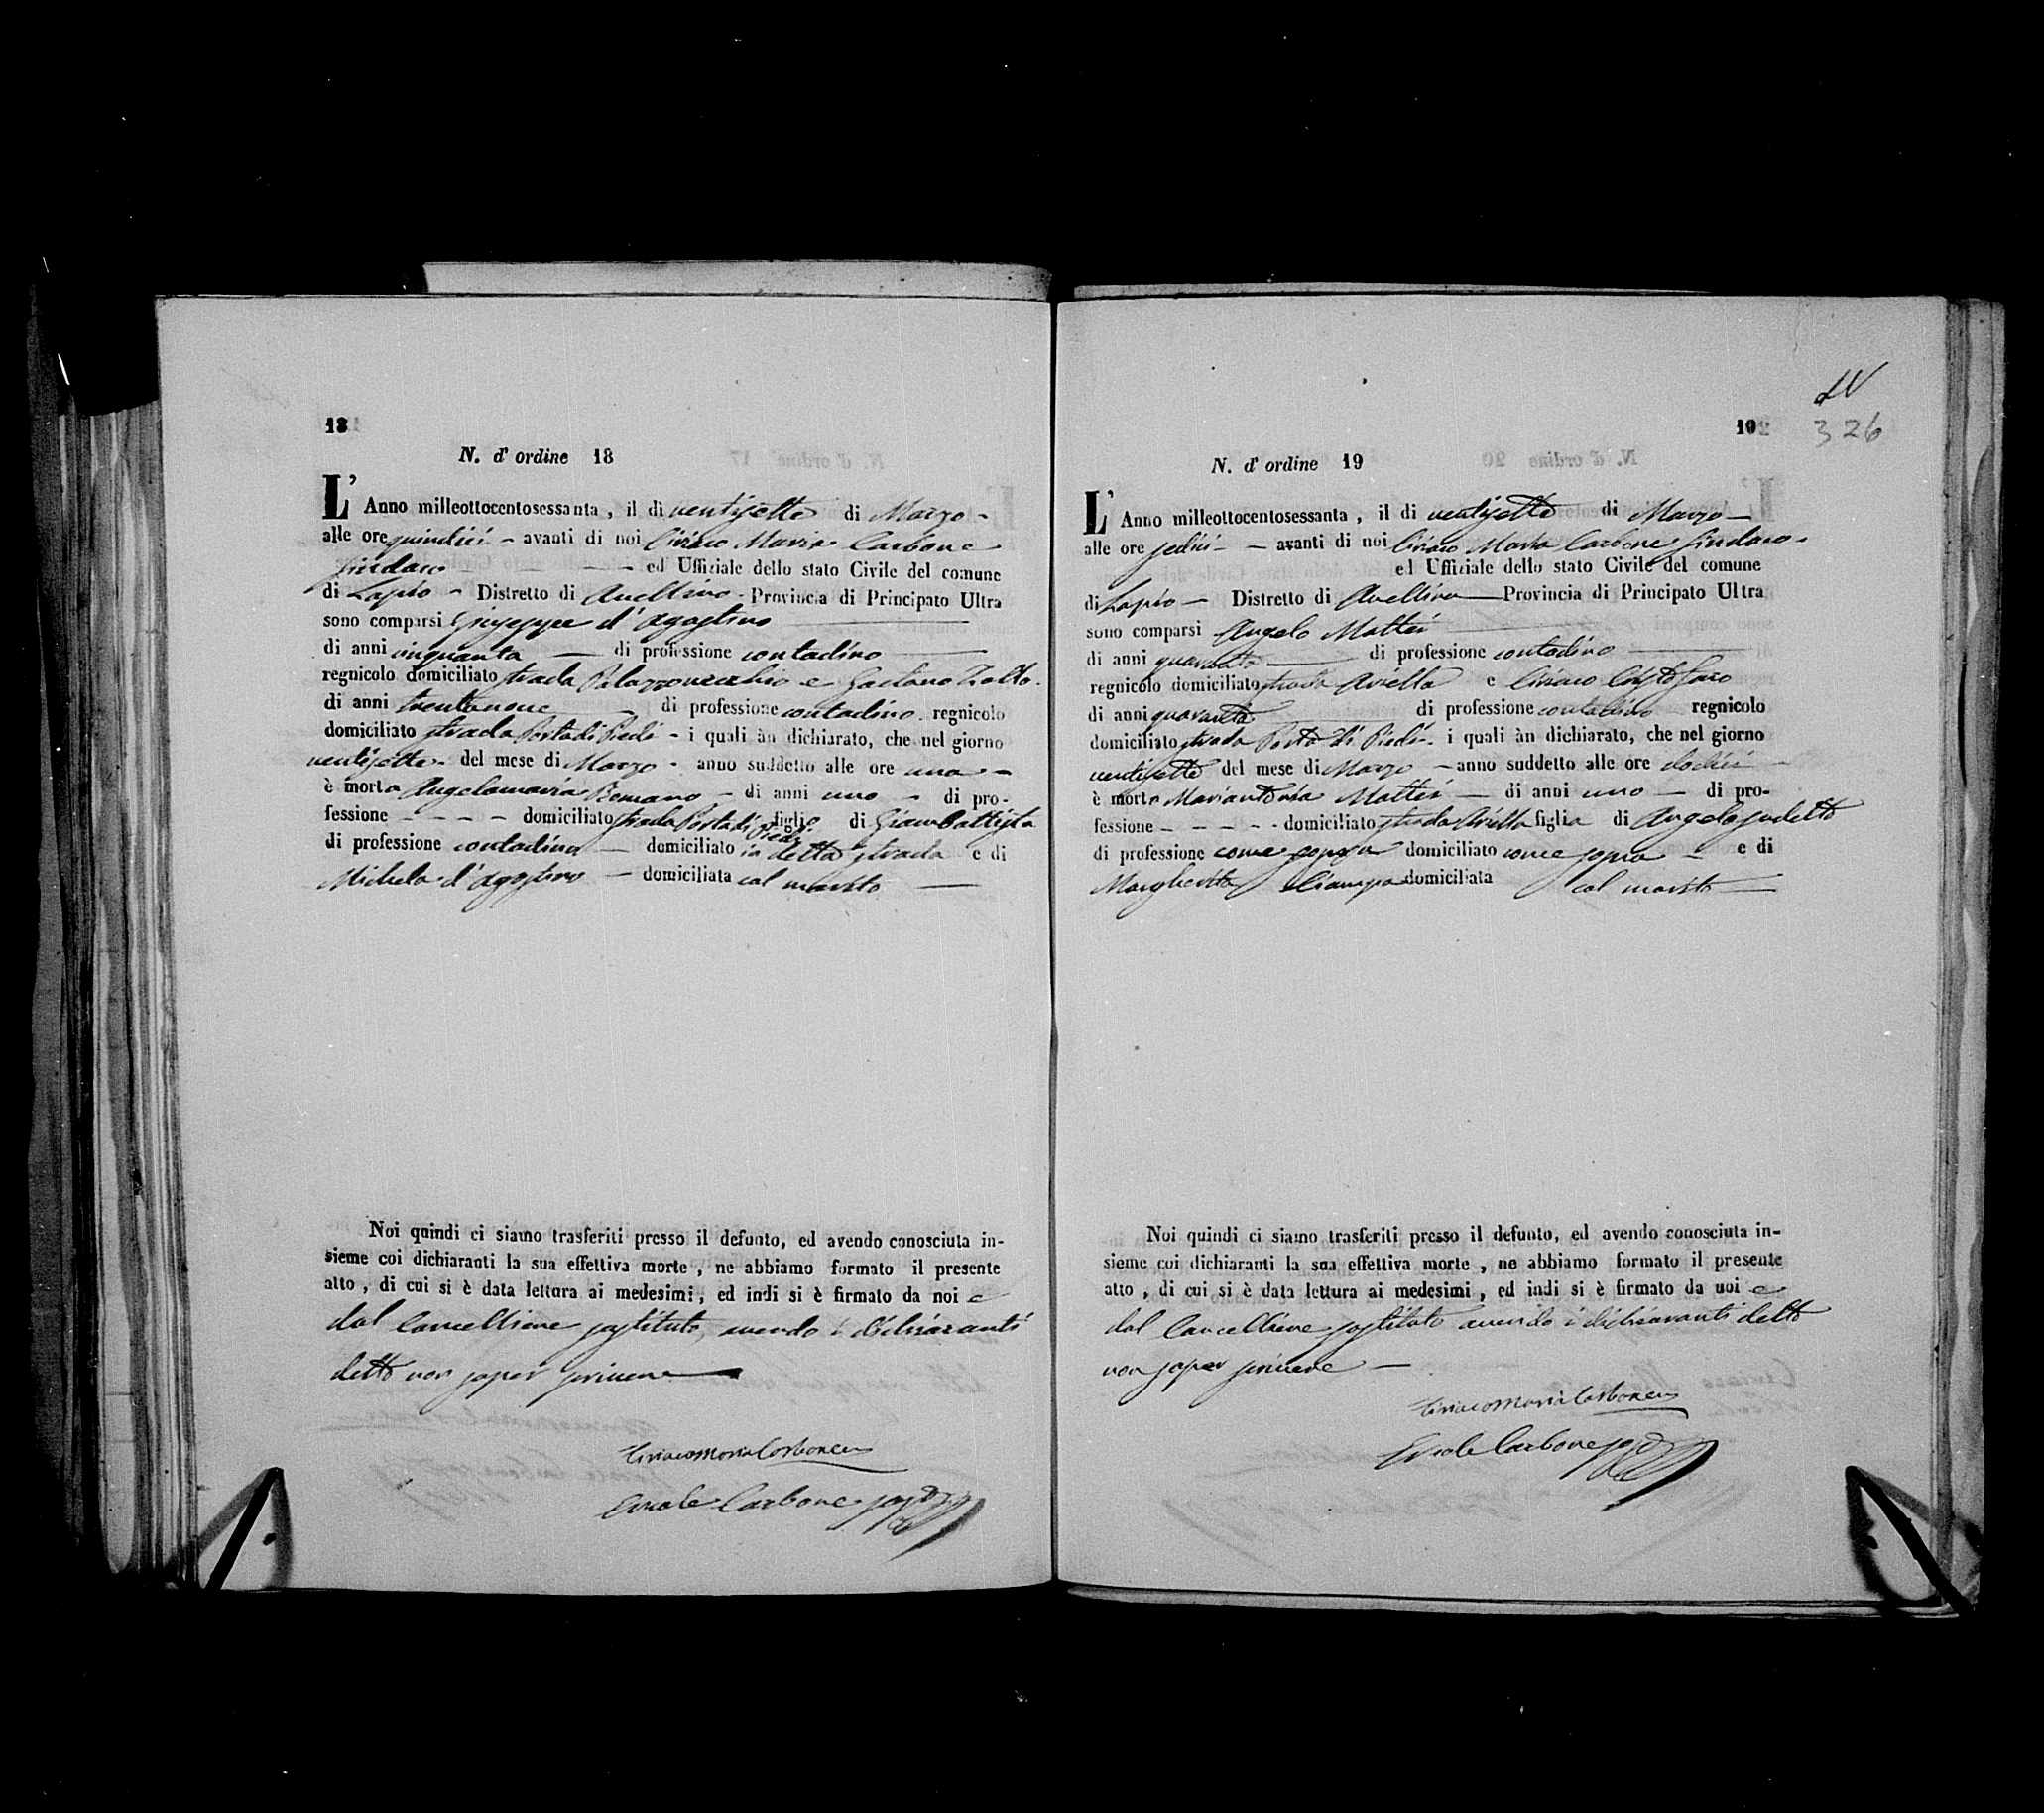 18
N. d' ordine 18
L' Anno milleottocentosessanta, il dì ventisette di Marzo -
alle ore quindici - avanti di noi Ciriaco Maria Carbone
Sindaco - - ed Uffiziale dello stato Civile del comune
di Lapio - Distretto di Avellino - Provincia di Principato Ultra
sono comparsi Giuseppe d'Agostino
di anni cinquanta di professione contadino
regnicolo domiciliato strada Palazzovecchio e Gaetano
di anni trentanove di professione contadino regnicolo
domiciliato strada Porta di Piedi - i quali àn dichiarato, che nel giorno
ventisette - del mese di Marzo - anno suddetto alle ore una -
è morta Angelamaria Romano - di anni uno - di pro-
fessione - - - - domiciliato strada Porta di Piedi figlio di Giambattista
di professione contadino - domiciliato in detta strada e di
Michela d'Agostino - domiciliata col marito
Noi quindi ci siamo trasferiti presso il defunto, ed avendo conosciuta in-
sieme coi dichiaranti la sua effettiva morte, ne abbiamo formato il presente
atto, di cui si è data lettura ai medesimi, ed indi si è firmato da noi e
dal Cancelliere sostituto, avendo i dichiaranti
detto non saper scrivere
Ciriaco Maria Carbone
Ercole Carbone
LV
19 326
N. d' ordine 19
L' Anno milleottocentosessanta, il dì ventisette di Marzo -
alle ore sedici - - avanti di noi Ciriaco Maria Carbone Sindaco -
ed Uffiziale dello stato Civile del comune
di Lapio - Distretto di Avellino - Provincia di Principato Ultra
sono comparsi Angelo Mattei
di anni quaranta di professione contadino
regnicolo domiciliato strada Airella e Ciriaco Cristofaro
di anni quaranta di professione contadino regnicolo
domiciliato strada Porta di Piedi - i quali àn dichiarato, che nel giorno
ventisette del mese di Marzo - anno suddetto alle ore dodici -
è morta Mariantonia Mattei - di anni uno - di pro-
fessione - - - - domiciliato strada Airella figlia di Angelo sudetto
di professione come sopra domiciliato come sopra - e di
Margherita Ciampa domiciliata col marito
Noi quindi ci siamo trasferiti presso il defunto, ed avendo conosciuta in-
sieme coi dichiaranti la sua effettiva morte, ne abbiamo formato il presente
atto, di cui si è data lettura ai medesimi, ed indi si è firmato da noi e
dal Cancelliere sostituto avendo i dichiaranti detto
non saper scrivere
Ciriaco Maria Carbone
Ercole Carbone